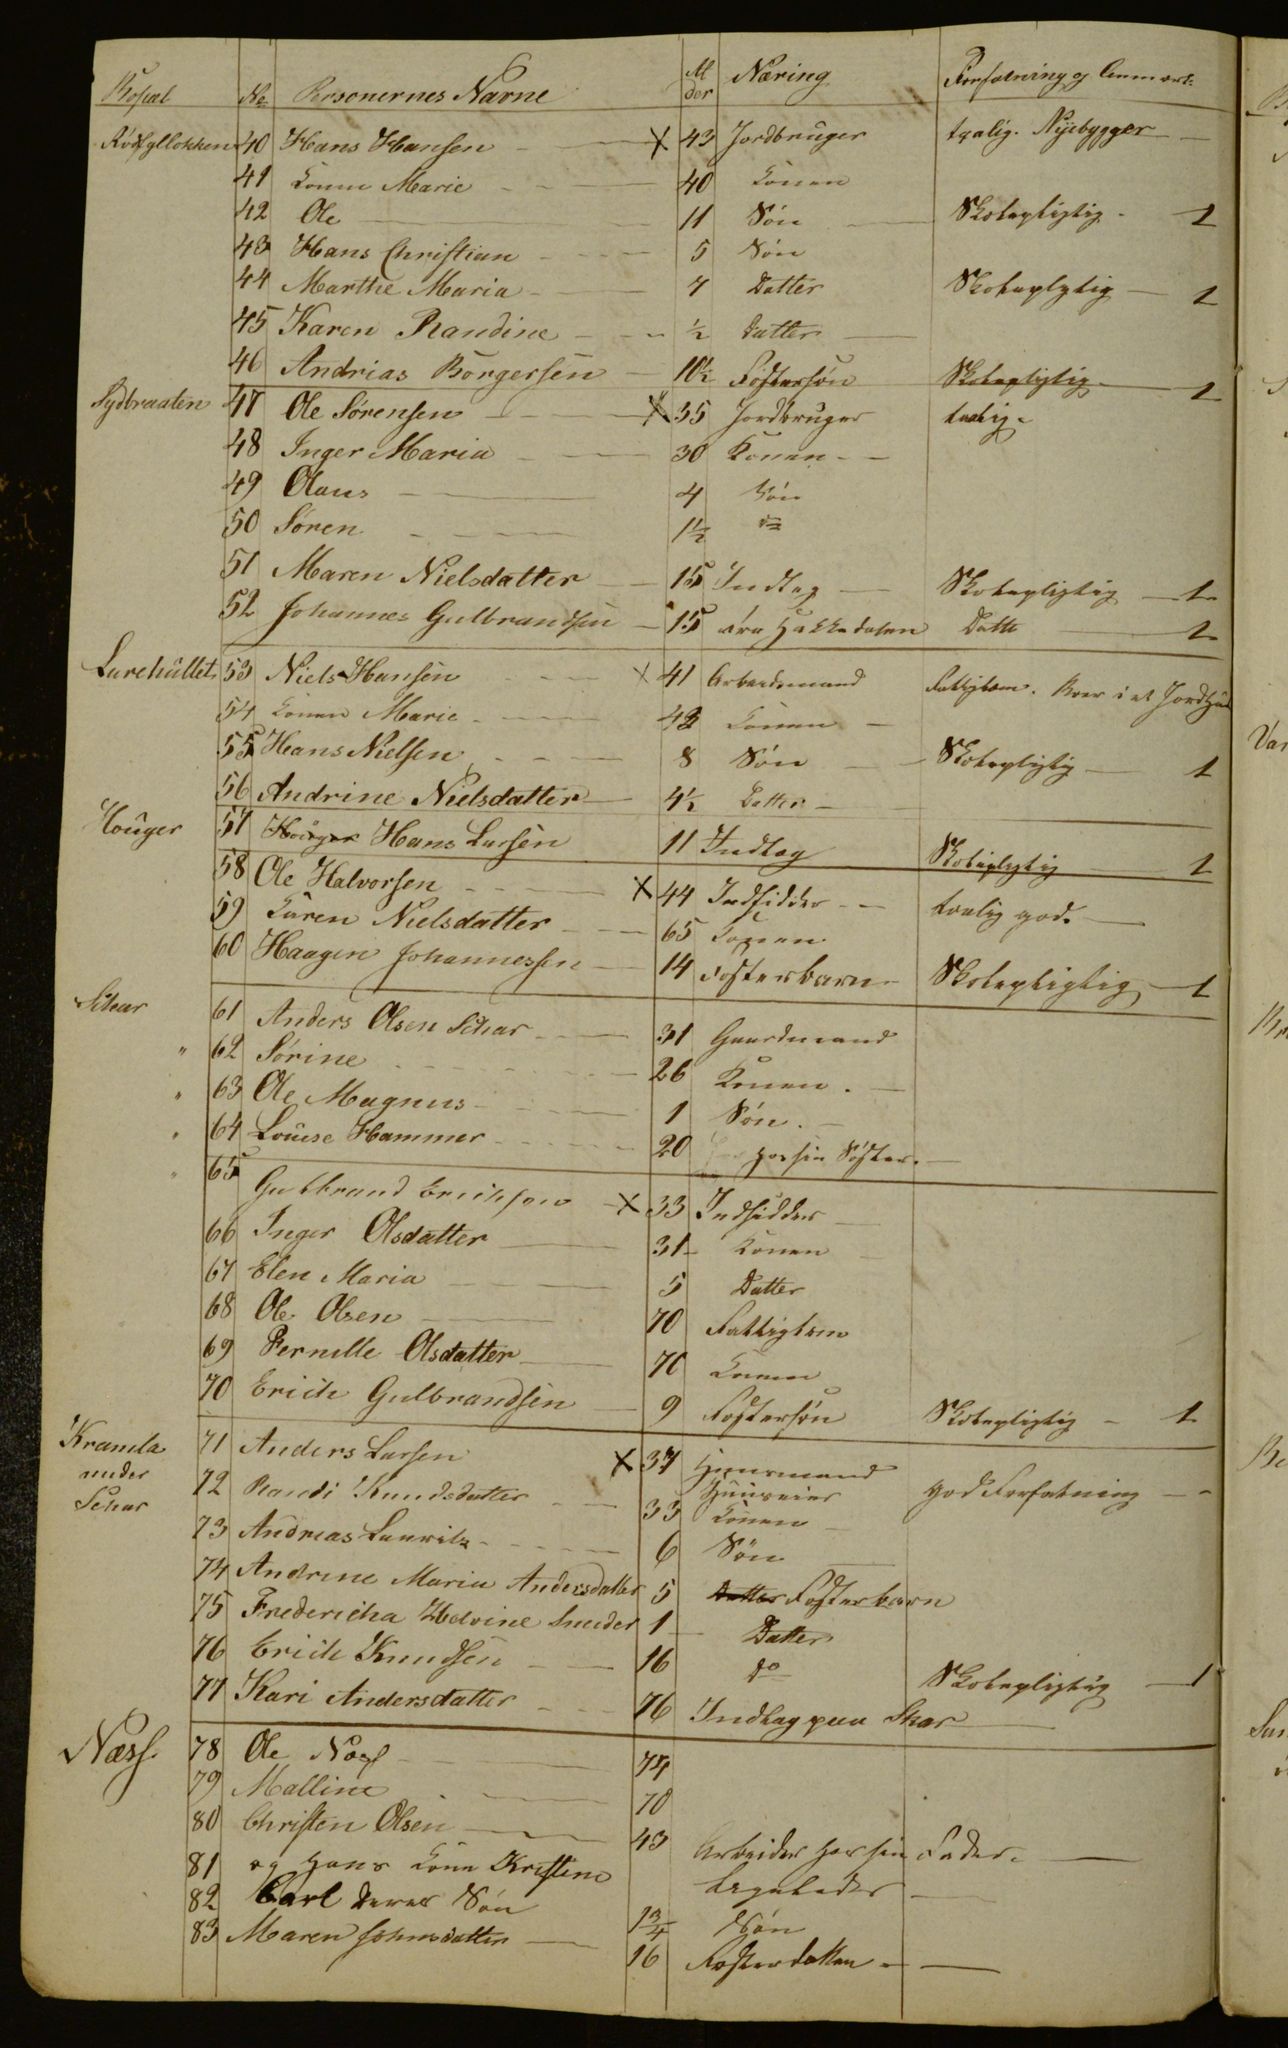 Bopæl No. Personernes Navne Alder Næring Forfatning og Anmærk.
40 Hans Hansen X 43 Jordbruger taalig. Nyebygger
41 Konen Marie 40 Konen
42 Ole 11 Søn Skolepligtig 1
43 Hans Christian 5 Søn
44 Marthe Maria 7 Datter Skoleplygtig 1
45 Karen Randine ½ Datter
46 Andrias Borgersen 10½ Fostersøn Skolepligtig 1
Sydbraaten 47 Ole Sørensen X 35 Jordbruger taalig
48 Inger Maria 30 Konen
49 Olaus 4 Søn
50 Søren 1½ do
51 Maren Nielsdatter 15 Indlag Skolepligtig 1
52 Johannes Gulbrandsen 15 fra Hakkedalen 1
Lurehullet 53 Niels Hansen X 41 Arbeidsmand Fattiglem. Boer i et
54 Konen Marie 42 Konen
55 Hans Nielsen 8 Søn Skolepligtig 1
56 Andrine Nielsdatter 4½ Datter
Houger 57 Houger Hans Larsen 11 Indlag Skoleplygtig 1
58 Ole Halvorsen X 44 Indsidder taalig god.
59 Karen Nielsdatter 65 Konen
60 Haagen Johannessen 14 Fosterbarn Skolepligtig 1
Schar 61 Anders Olsen Schar 31 Gaardmand
" 62 Sørine 26 Konen
" 63 Ole Magnus 1 Søn
" 64 Louise Hammer 20 hos sin Søster
" 65 Gulbrand Erichsen X 33 Indsidder
66 Inger Olsdatter 31 Konen
67 Elen Maria 5 Datter
68 Ole Olsen 70 Fattiglem
69 Pernille Olsdatter 70 Konen
70 Erich Gulbrandsen 9 Fostersøn Skolepligtig 1
Kramla 71 Anders Larsen X 37 Huusmand
under 72 Randi Knudsdatter 33 Konen god Forfatning
Schar 73 Andreas Lauritz 6 Søn
74 Andrine Maria Andersdatter 5 Datter Fosterbarn
75 Fredericha Hedvine 1 Datter
76 Erich Knudsen 16 do Skolepligtig 1
77 Kari Andersdatter 76 Indlag paa Skar
Næss 78 Ole Næss 74
79 Malline 70
80 Christen Olsen 43 Arbeider hos sin Fader
81 og hans Kone Kristine Ligeledes
82 Carl deres Søn 1¾ Søn
83 Maren Johnsdatter 16 Fosterdatter